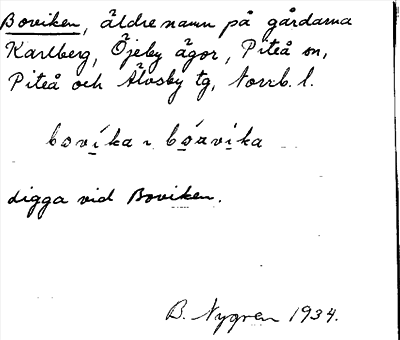 Boviken, äldre namn på gårdarna
Karlberg, Öjeby ägor, Piteå sn,
Piteå och Älvsby tg, Norrb. l.
bovíka ~ bóavika
digga vid Boviken.
B. Nygren 1934.